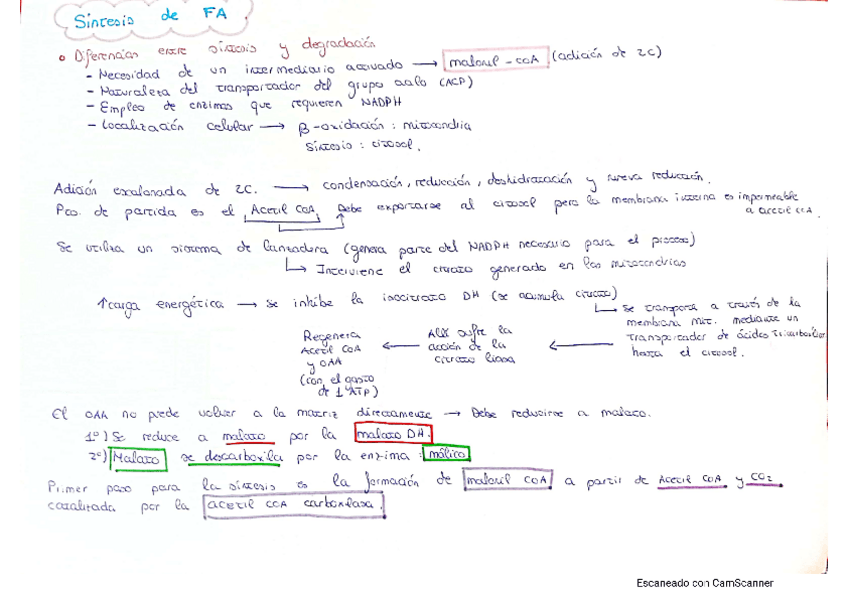 Síntesis de FA.
• Diferencias entre síntesis y degradación
- Necesidad de un intermediario activado → malonil-CoA (adición de 2C)
- Naturaleza del transportador del grupo acilo (ACP)
- Empleo de enzimas que requieren NADPH
- Localización celular → β-oxidación: mitocondria
síntesis: citosol.
Adición escalonada de 2C. → condensación, reducción, deshidratación y nueva reducción.
Pto. de partida es el Acetil CoA. Debe exportarse al citosol pero la membrana interna es impermeable
a acetil CoA.
Se utiliza un sistema de lanzadera (genera parte del NADPH necesario para el proceso)
↳ Interviene el citrato generado en las mitocondrias
↑carga energética → se inhibe la isocitrato DH (se acumula citrato)
↳ se transporta a través de la
membrana mit. mediante un
transportador de ácidos tricarboxílicos
hasta el citosol.
← Allí sufre la
acción de la
citrato liasa
← Regenera
Acetil CoA
y OAA
(con el gasto
de 1 ATP)
El OAA no puede volver a la matriz directamente → Debe reducirse a malato.
1º) Se reduce a malato por la malato DH.
2º) Malato se descarboxila por la enzima: málico
Primer paso para la síntesis es la formación de malonil CoA a partir de Acetil CoA y CO2
catalizada por la acetil CoA carboxilasa.
Escaneado con CamScanner